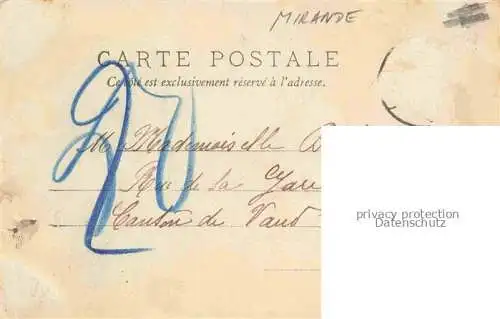 MIRANDE
CARTE POSTALE
Ce côté est exclusivement réservé à l'adresse.
20
Mademoiselle
Rue de la Gare
Canton de Vaud
privacy protection
Datenschutz